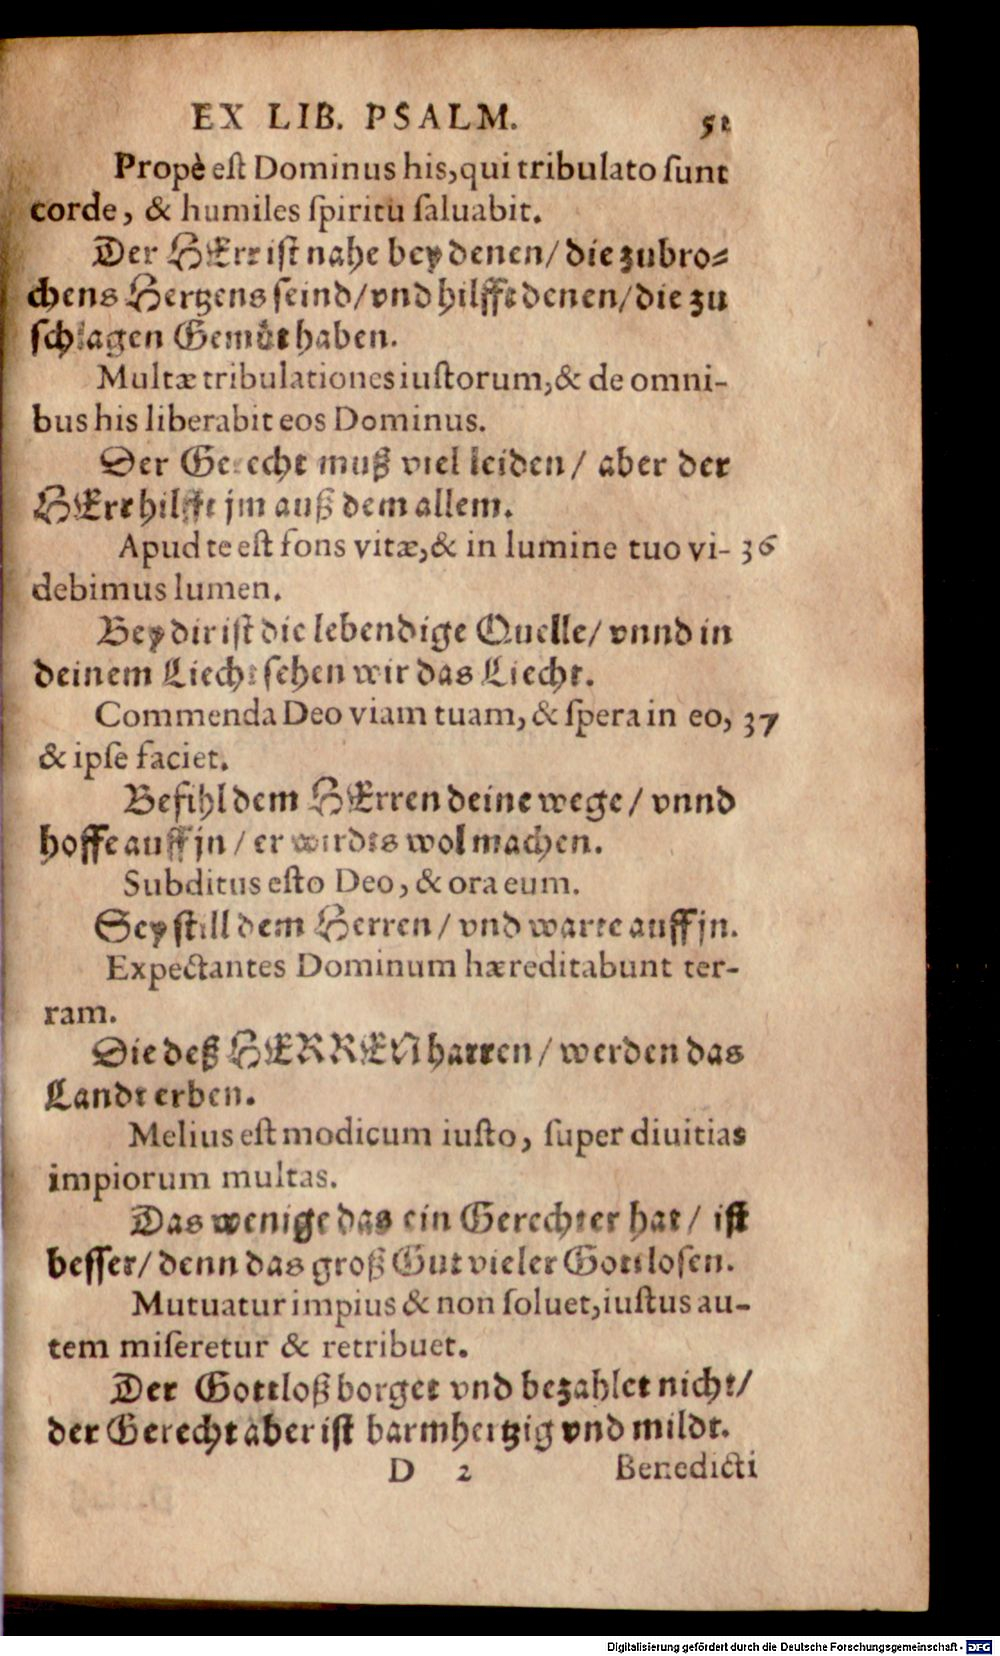 EX LIB. PSALM. 51
Propè est Dominus his, qui tribulato sunt
corde, & humiles spiritu saluabit.
Der HErr ist nahe bey denen / die zubro-
chens Hertzens seind / vnd hilfft denen / die zu
schlagen Gemüt haben.
Multæ tribulationes iustorum, & de omni-
bus his liberabit eos Dominus.
Der Gerecht muß viel leiden / aber der
HErr hilfft jm auß dem allem.
Apud te est fons vitæ, & in lumine tuo vi- 36
debimus lumen.
Bey dir ist die lebendige Quelle / vnnd in
deinem Liecht sehen wir das Liecht.
Commenda Deo viam tuam, & spera in eo, 37
& ipse faciet.
Befihl dem HErren deine wege / vnnd
hoffe auff jn / er wirdts wol machen.
Subditus esto Deo, & ora eum.
Sey still dem Herren / vnd warte auff jn.
Expectantes Dominum hæreditabunt ter-
ram.
Die deß HERREN harren / werden das
Landt erben.
Melius est modicum iusto, super diuitias
impiorum multas.
Das wenige das ein Gerechter hat / ist
besser / denn das groß Gut vieler Gottlosen.
Mutuatur impius & non soluet, iustus au-
tem miseretur & retribuet.
Der Gottloß borget vnd bezahlet nicht /
der Gerecht aber ist barmhertzig vnd mildt.
D 2 Benedicti
Digitalisierung gefördert durch die Deutsche Forschungsgemeinschaft - DFG